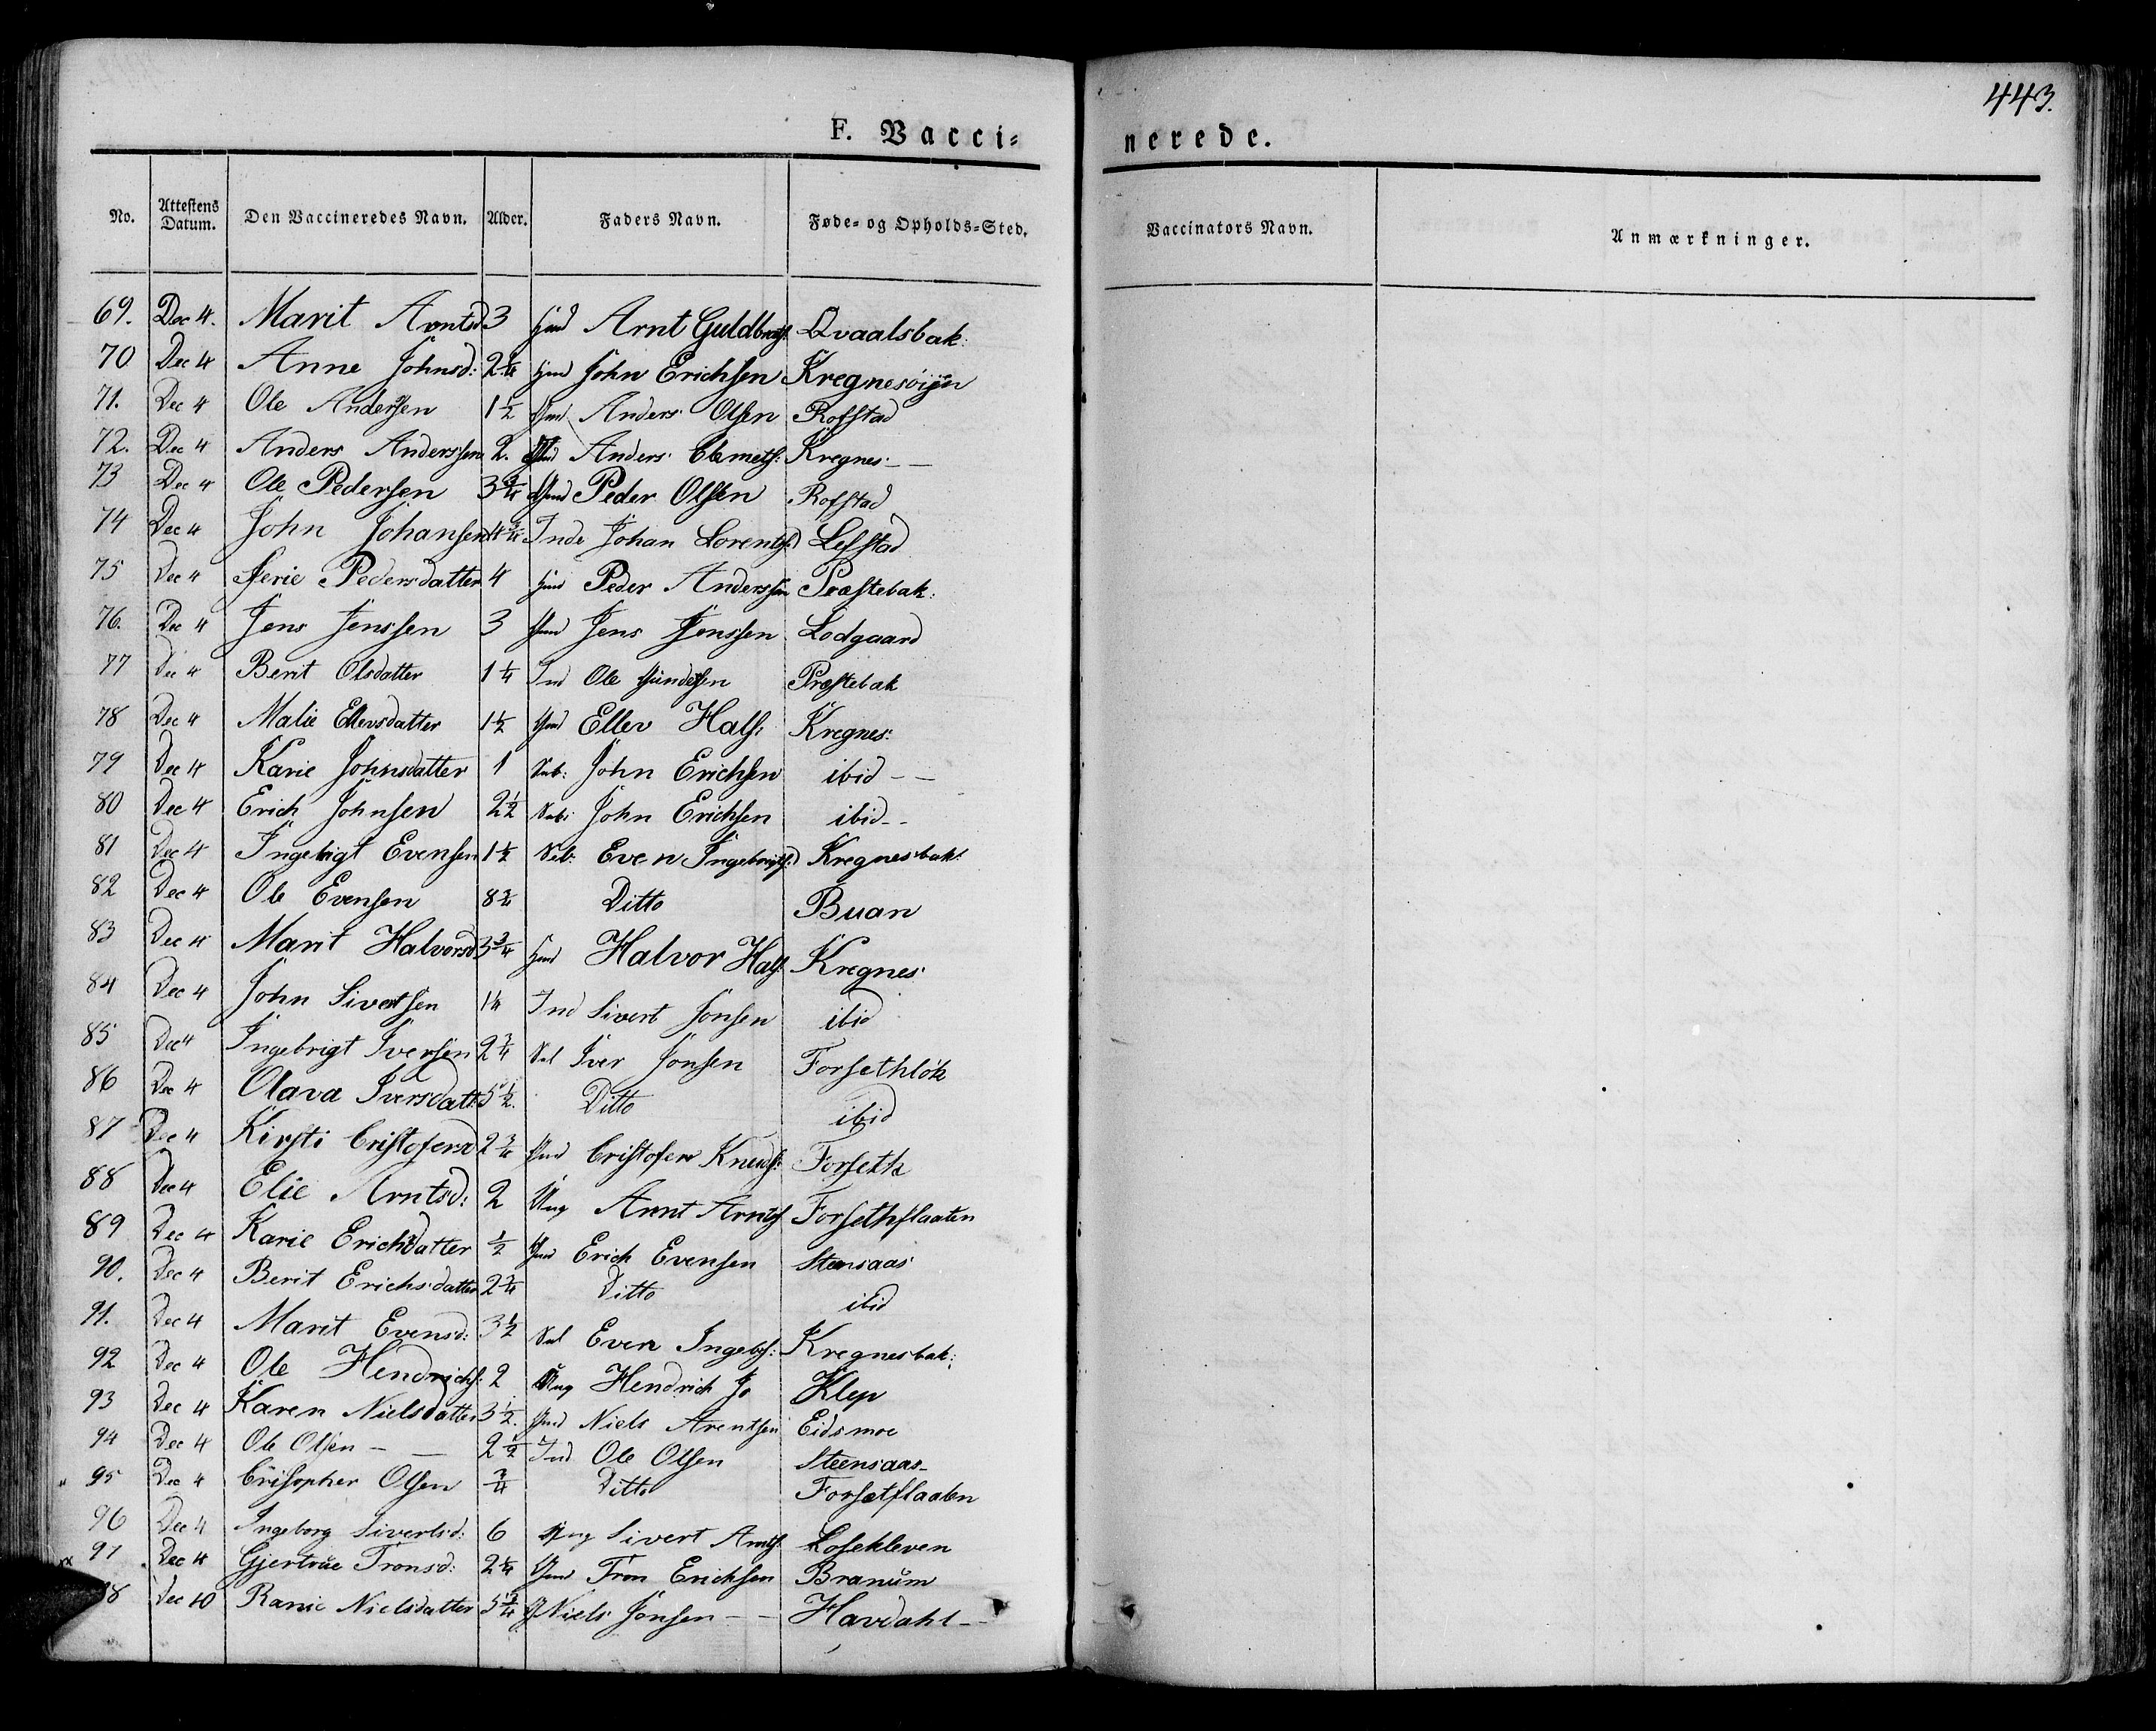 443.
F. Vacci=
nerede.
No. Attestens Datum. Den Vaccineredes Navn. Alder. Faders Navn. Føde= og Opholds=Sted. Vaccinators Navn. Anmærkninger.
69. Dec 4. Marit Arntsd 3 Arnt Guldbrands: Qvaalsbak:
70 Dec 4 Anne Johnsd: 2 1/4 John Erichsen Kregnesöijen
71. Dec 4 Ole Andersen 1 1/2 Anders Olsen Rofstad
72. Dec 4 Anders Anderssen 2. Anders Clemets: Kregnes
73 Dec 4 Ole Pedersen 3 3/4 Peder Olsen Rofstad
74 Dec 4 John Johansen 4 3/4 Inde Johan Lorents: Lefstad
75 Dec 4 Serie Pedersdatter 4 Peder Anderssen Præstebak:
76. Dec 4 Jens Jenssen 3 Jens Jenssen Lodgaard
77 Dec 4 Berit Olsdatter 1 1/4 Ind Ole Præstebak
78 Dec 4 Malie Ellevsdatter 1 1/2 Ellev Hals: Kregnes:
79 Dec 4 Karie Johnsdatter 1 John Erichsen ibid - -
80 Dec 4 Erich Johnsen 2 1/2 John Erichsen ibid - -
81 Dec 4 Ingebrigt Evensen 1 1/2 Even Ingebrigts: Kregnesbak:
82 Dec 4 Ole Evensen 8 3/4 Ditto Buan
83 Dec 4 Marit Halvorsd 3 3/4 Halvor Hals: Kregnes
84 Dec 4 John Sivertsen 1 1/4 Ind Sivert Jonsen ibid
85 Dec 4 Ingebrigt Iversen 2 3/4 Iver Jonsen Forsethlök
86 Dec 4 Olava Iversdatt: 5 1/2. Ditto ibid
87 Dec 4 Kirsti Cristofersd 2 3/4 Cristofer Knuds: Forseth
88 Dec 4 Elie Arntsd: 2 Ung Arnt Arnts: Forsethflaaten
89 Dec 4 Karie Erichsdatter 1/2 Erich Evensen Steensaas
90. Dec 4 Berit Erichsdatter 2 3/4 Ditto ibid
91. Dec 4 Marit Evensd: 3 1/2 Even Ingebs: Kregnesbak:
92 Dec 4 Ole Hendrichs: 2 Ung Hendrich Jo Klep
93 Dec 4 Karen Nielsdatter 3 1/2. Niels Arentsen Eidsmoe
94 Dec 4 Ole Olsen - - 2 1/2 Ind Ole Olsen Steensaas
95 Dec 4 Crisopher Olsen 3/4 Ditto Forsetflaaten
96 Dec 4 Ingeborg Sivertsd: 6 Ung Sivert Arnts: Losekleven
97 Dec 4 Gjertrue Tronsd: 2 1/4 Tron Erichsen Branum
98 Dec 10 Ranie Nielsdatter 5 3/4 Niels Jonsen - - Havdahl -